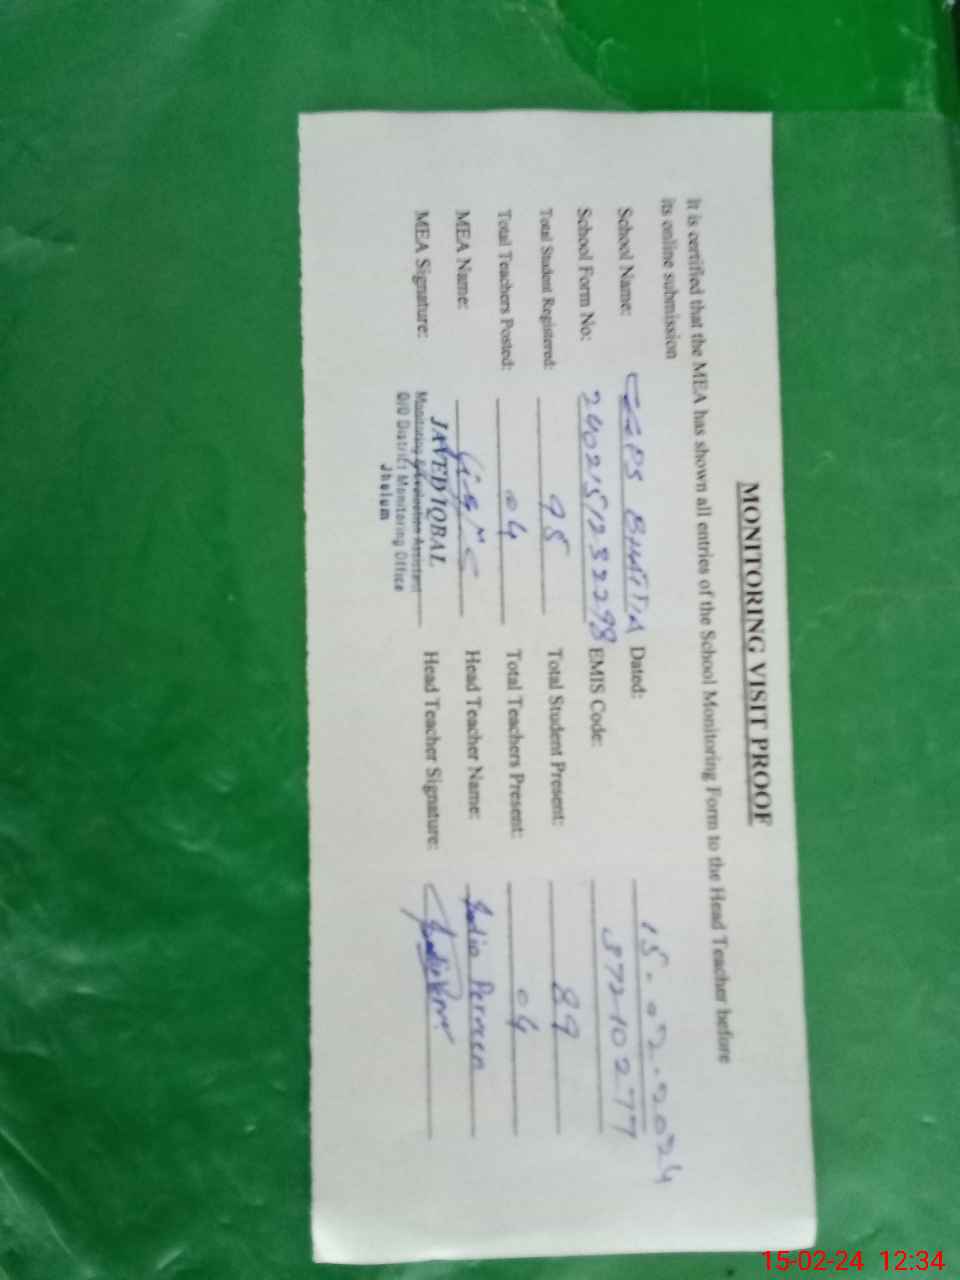 MONITORING VISIT PROOF
It is certified that the MEA has shown all entries of the School Monitoring Form to the Head Teacher before
its online submission
School Name: GPS BHATTIA Dated: 15-02-2024
School Form No: EMIS Code: 37210277
Total Student Registered: 98 Total Student Present: 89
Total Teachers Posted: 04 Total Teachers Present: 04
MEA Name: Head Teacher Name: Sadia Perveen
JAVED IQBAL
MEA Signature: Monitoring & Evaluation Assistant Head Teacher Signature:
O/O District Monitoring Office
Jhelum
15-02-24 12:34